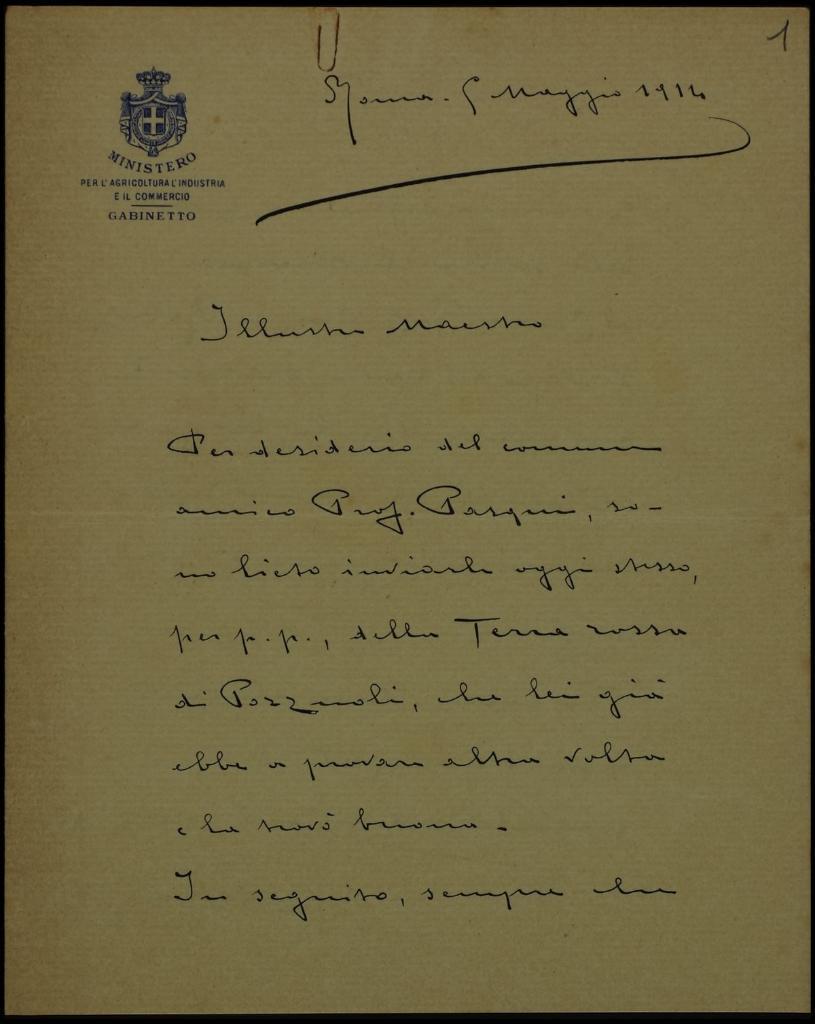 1
Roma. 5 Maggio 1914
MINISTERO
PER L'AGRICOLTURA L'INDUSTRIA
E IL COMMERCIO
GABINETTO
Illustre Maestro
Per desiderio del comune
amico Prof. Pasqui, so-
no lieto inviarle oggi stesso,
per p.p., della Terra rossa
di Pozzuoli, che lei già
ebbe a provare altra volta
e la trovò buona.
In seguito, sempre che